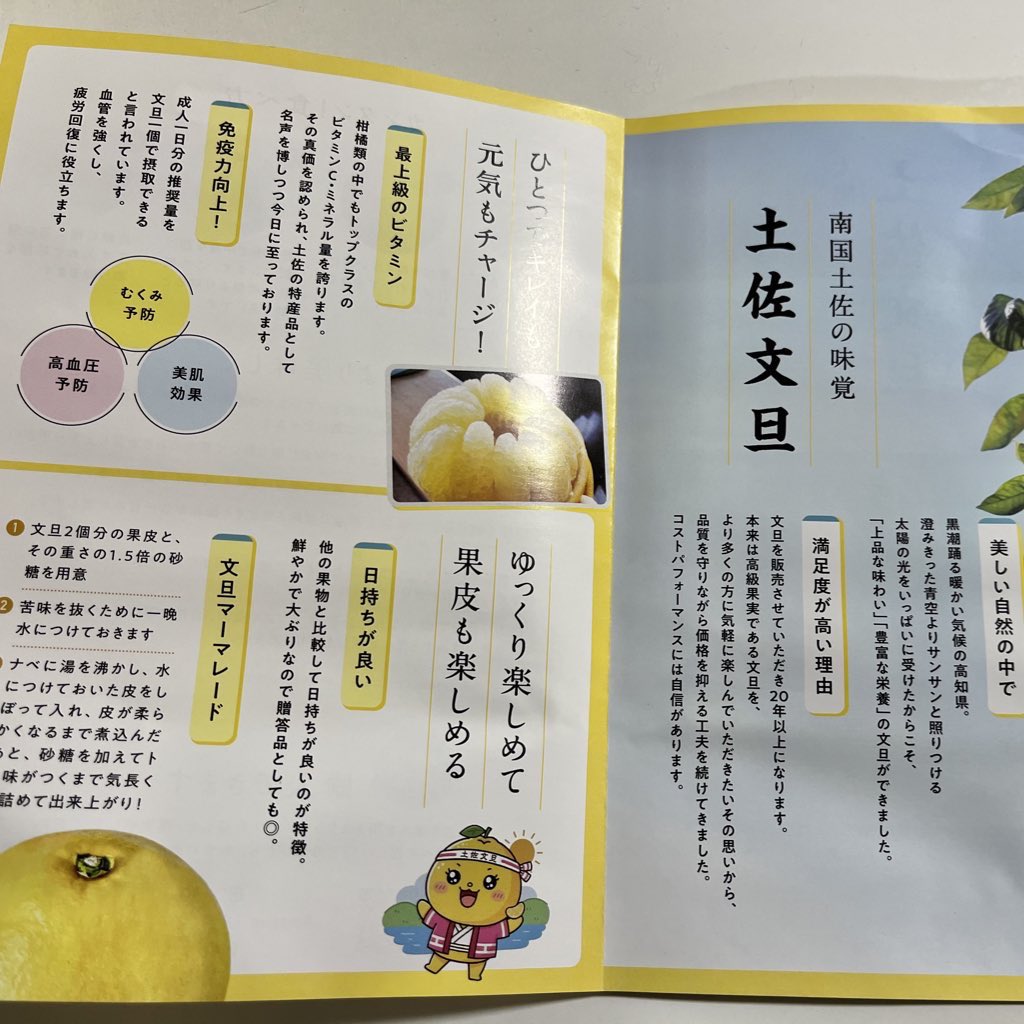 南国土佐の味覚
土佐文旦
美しい自然の中で
黒潮踊る暖かい気候の高知県。
澄みきった青空よりサンサンと照りつける
太陽の光をいっぱいに受けたからこそ、
「上品な味わい」「豊富な栄養」の文旦ができました。
満足度が高い理由
文旦を販売させていただき20年以上になります。
本来は高級果実である文旦を、
より多くの方に気軽に楽しんでいただきたいその思いから、
品質を守りながら価格を抑える工夫を続けてきました。
コストパフォーマンスには自信があります。
ひとつでキレイも
元気もチャージ!
最上級のビタミン
柑橘類の中でもトップクラスの
ビタミンC・ミネラル量を誇ります。
その真価を認められ、土佐の特産品として
名声を博しつつ今日に至っております。
免疫力向上!
成人一日分の推奨量を
文旦一個で摂取できる
と言われています。
血管を強くし、
疲労回復に役立ちます。
むくみ
予防
高血圧
予防
美肌
効果
ゆっくり楽しめて
果皮も楽しめる
日持ちが良い
他の果物と比較して日持ちが良いのが特徴。
鮮やかで大ぶりなので贈答品としても◎。
文旦マーマレード
1 文旦2個分の果皮と、
その重さの1.5倍の砂
糖を用意
2 苦味を抜くために一晩
水につけておきます
ナベに湯を沸かし、水
につけておいた皮をし
ぼって入れ、皮が柔ら
かくなるまで煮込んだ
あと、砂糖を加えてト
味がつくまで気長く
詰めて出来上がり!
土佐文旦